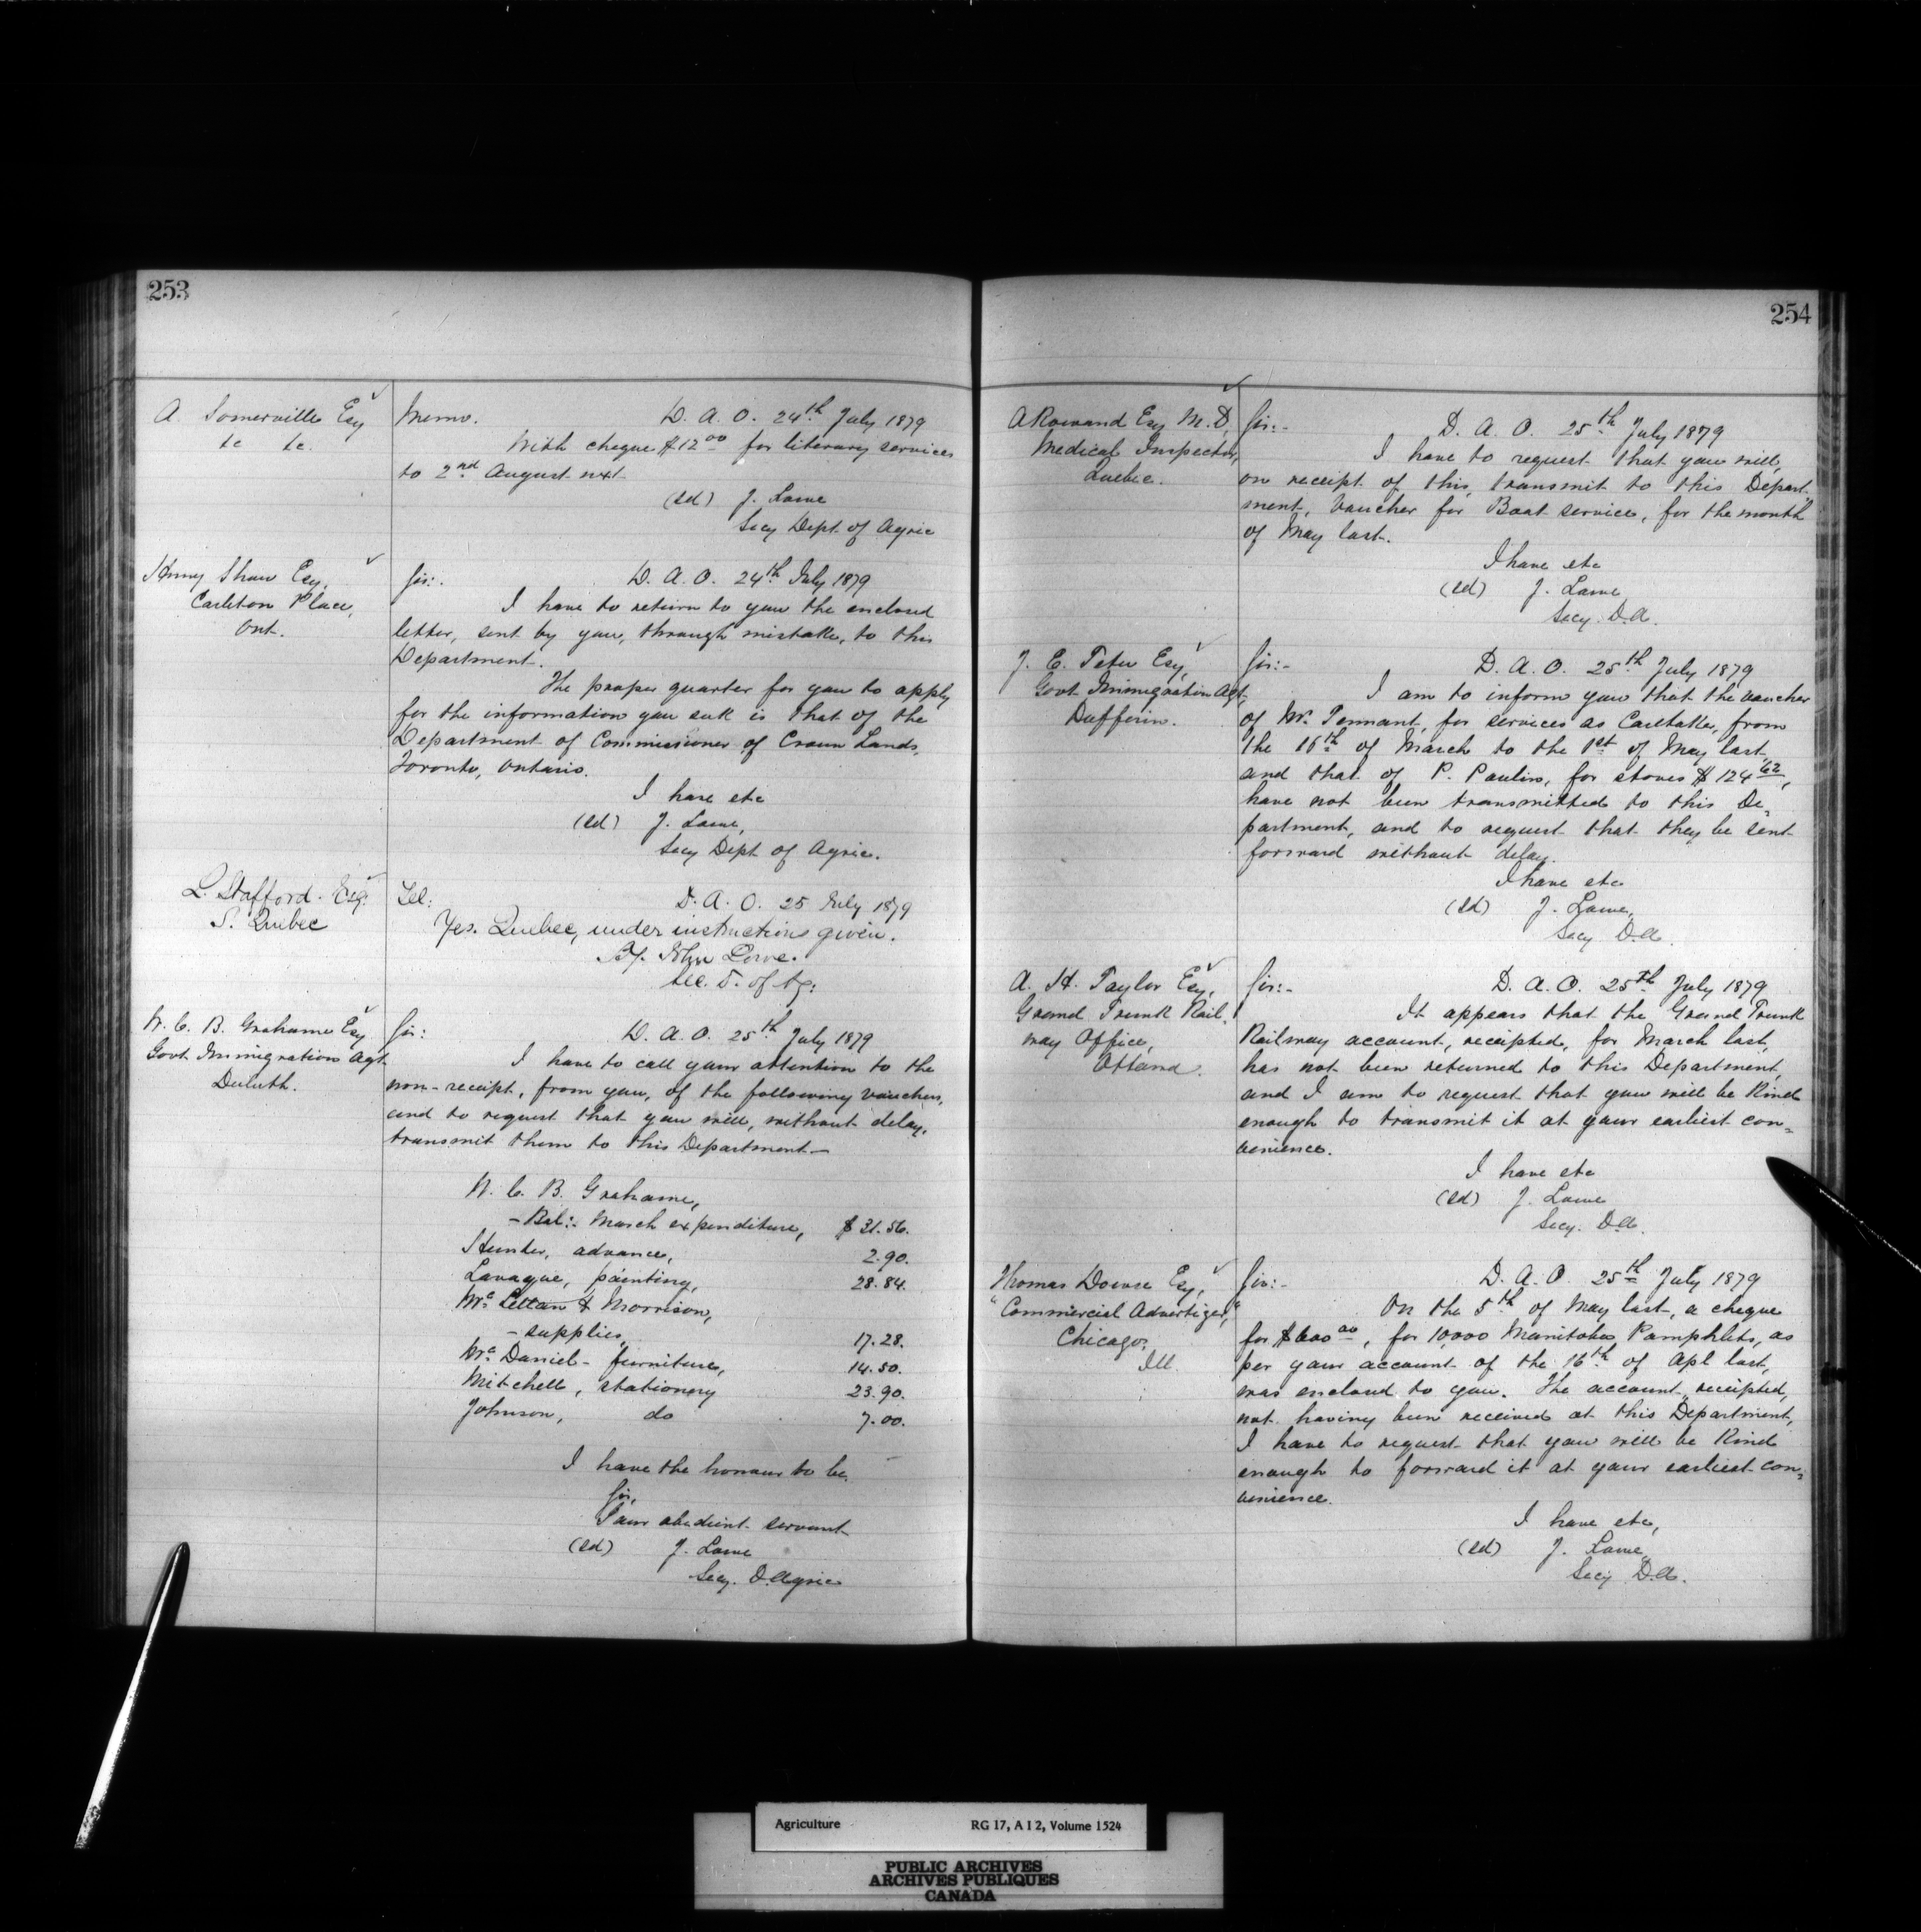 253
A Somerville Esq
&c &c.
Memo. D. A. O. 24th July 1879
With cheque $12 00 for literary services
to 2nd August nxt
(sd) J. Lowe
Secy Dept. of Agric
Henry Shaw Esq,
Carleton Place,
Ont.
Sir:- D. A. O. 24th July 1879
I have to return to you the enclosed
letter, sent by you, through mistake, to this
Department.
The proper quarter for you to apply
for the information you seek is that of the
Department of Commissioner of Crown Lands,
Toronto, Ontario.
I have etc
(sd) J. Lowe,
Secy Dept of Agric.
L. Stafford. Esq.
S. Quebec
Tel: D. A. O. 25 July 1879
Yes. Quebec, under instructions given.
John Lowe.
Sec. D. of Ag:
W. C. B. Grahame Esq
Govt Immigration Agt
Duluth.
Sir: D. A. O. 25th July 1879
I have to call your attention to the
non-receipt, from you, of the following vouchers,
and to request that you will, without delay,
transmit them to this Department—
W. C. B. Grahame,
- Bal:- March expenditure, $ 31.56.
Hunter, advance, 2.90.
Lavaque, painting, 28.84.
Mc Lettan & Morrison,
- supplies, 17.28.
Mc Daniel- furniture, 14.50.
Mitchell, stationery 23.90.
Johnson, do 7.00.
I have the honour to be,
Sir,
Your obedient servant
(sd) J. Lowe
Secy. D. Agric
254
A Rowand Esq M.D,
Medical Inspector,
Quebec.
Sir:- D. A. O. 25th July 1879
I have to request that you will,
on receipt of this, transmit to this Depart-
ment, voucher for Boat service, for the month
of May last.
I have etc
(sd) J. Lowe,
Secy. D.A.
J. E. Tetu Esq,
Govt Immigration Agt,
Dufferin.
Sir:- D. A. O. 25th July 1879
I am to inform you that the voucher
of Mr. Tennant, for services as Caretaker, from
the 16th of March to the 1st of May last,
and that of P. Paulin, for stoves $ 124 62,
have not been transmitted to this De-
partment, and to request that they be sent
forward without delay.
I have etc
(sd) J. Lowe,
Secy D.A.
A. H. Taylor Esq,
Grand Trunk Rail-
way Office,
Ottawa.
Sir:- D. A. O. 25th July 1879
It appears that the Grand Trunk
Railway account, receipted, for March last,
has not been returned to this Department,
and I am to request that you will be kind
enough to transmit it at your earliest con-
venience.
I have etc
(sd) J. Lowe
Secy. D.A.
Thomas Dowse Esq,
"Commercial Advertizer,"
Chicago,
Ill.
Sir:- D. A. O. 25th July 1879
On the 5th of May last, a cheque
for $600 00, for 10,000 Manitoba Pamphlets, as
per your account of the 16th of Apl last,
was enclosed to you. The account, receipted,
not having been received at this Department,
I have to request that you will be kind
enough to forward it at your earliest con-
venience.
I have etc,
(sd) J. Lowe,
Secy D.A.
Agriculture RG 17, A I 2, Volume 1524
PUBLIC ARCHIVES
ARCHIVES PUBLIQUES
CANADA